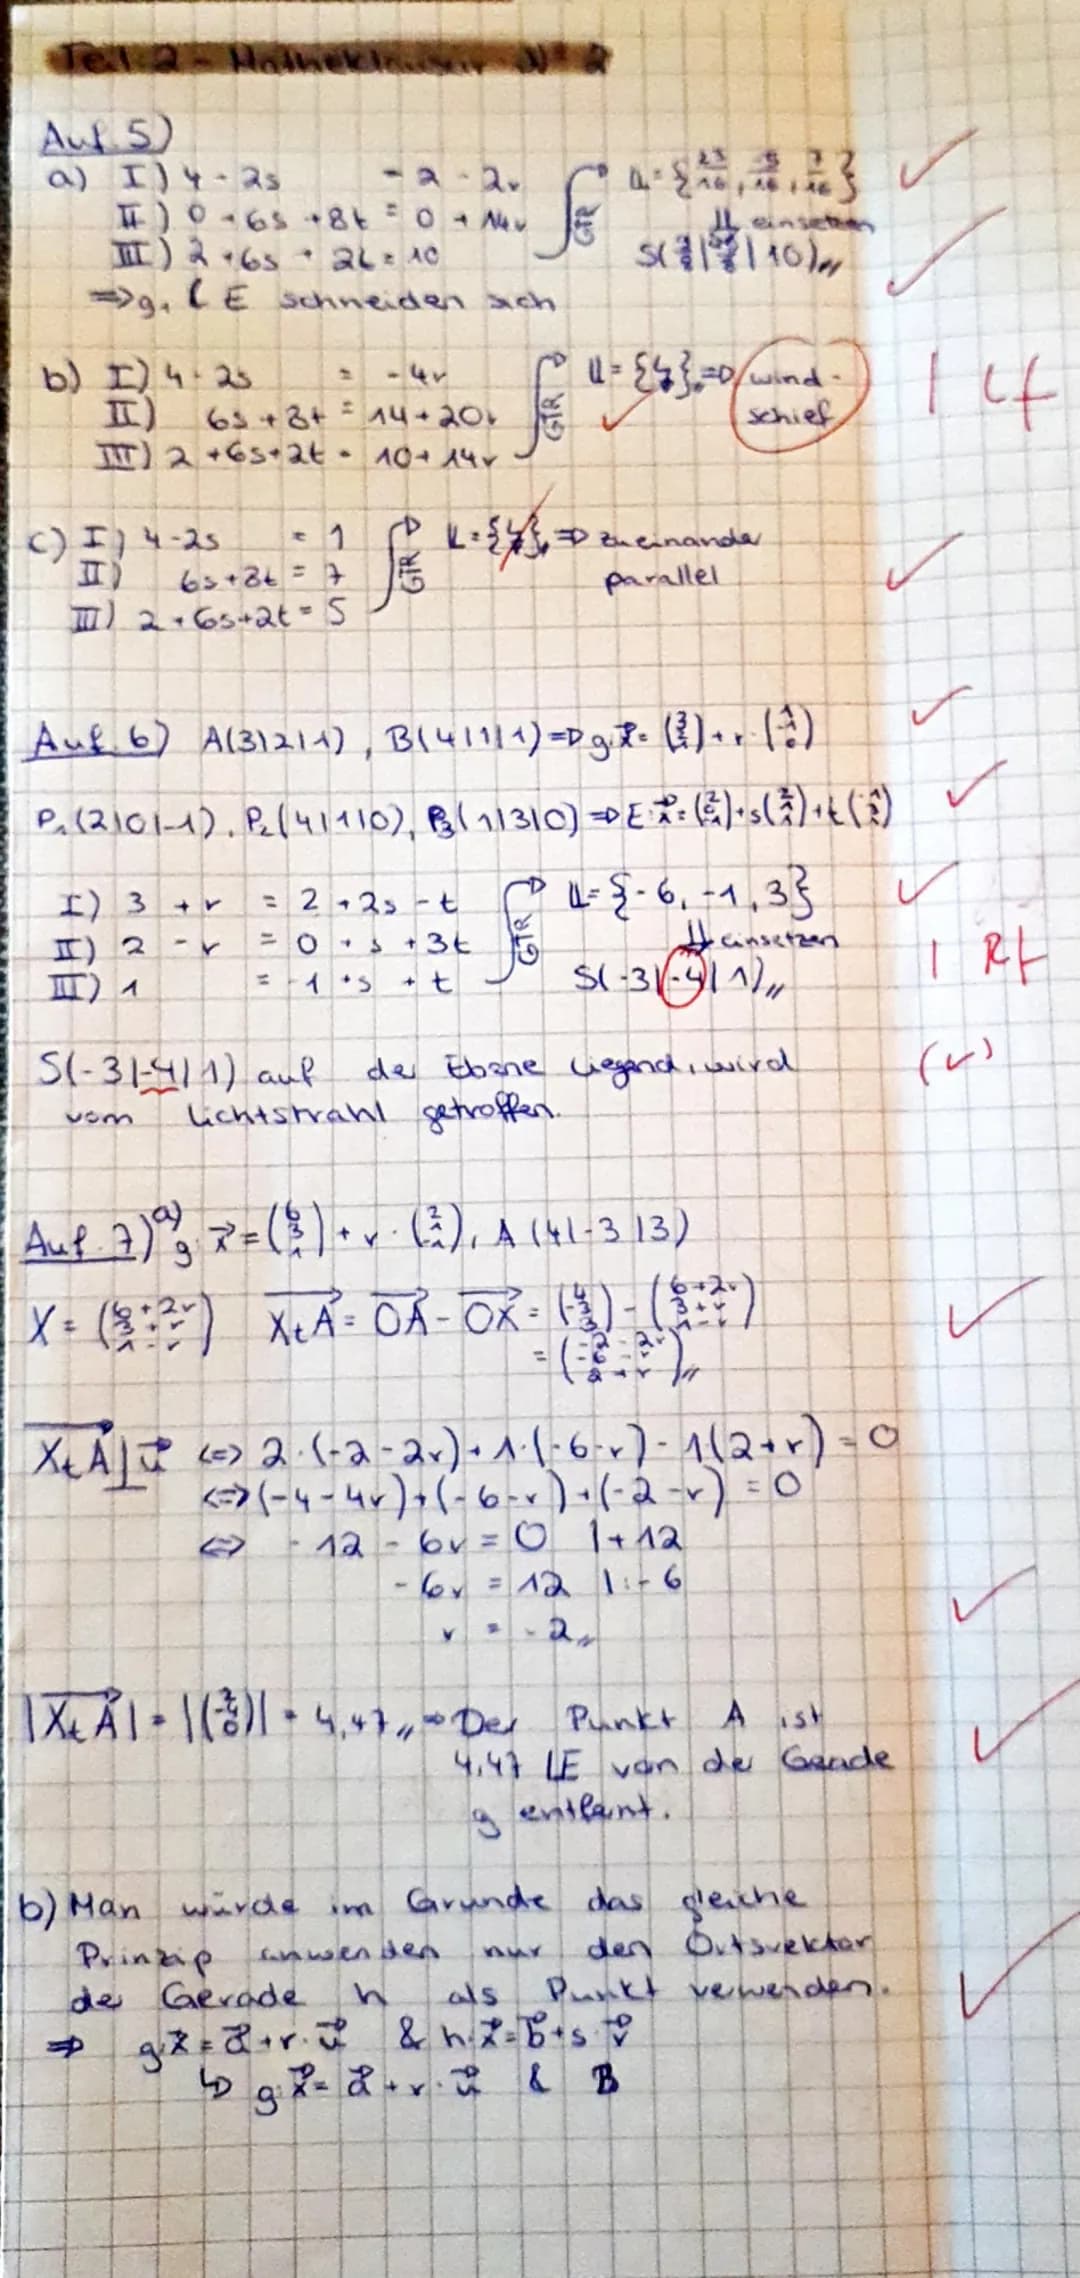 Teil 2 - Matheklausur N° 2
Auf. 5)
a) I) 4 - 2s = 2 - 2v
II) 0 + 6s + 8t = 0 + 14v
III) 2 + 6s + 2t = 10
GTR
L = {23/16, -5/16, 7/16}
⇓ einsetzen
| 10)
=> g, E schneiden sich
b) I) 4 - 2s = -4r
II) 6s + 8t = 14 + 20r
III) 2 + 6s + 2t = 10 + 14r
GTR
L = {↯} => windschief
| Lf
c) I) 4 - 2s = 1
II) 6s + 8t = 7
III) 2 + 6s + 2t = 5
GTR
L = {↯} => zueinander
parallel
Auf. 6) A(3|2|1), B(4|1|1) => g: x⃗ = (3 2 1) + r · (1 -1 0)
P₁(2|0|-1), P₂(4|1|0), P₃(1|3|0) => E: x⃗ = (2 0 -1) + s(2 1 1) + t(-1 3 1)
I) 3 + r = 2 + 2s - t
II) 2 - r = 0 + s + 3t
III) 1 = -1 + s + t
GTR
L = {-6, -1, 3}
⇓ einsetzen
S(-3|-4|1)
| Rf
S(-3|-4|1) auf der Ebene liegend, wird (✓)
vom Lichtstrahl getroffen.
Auf. 7) a) g: x⃗ = (6 3 1) + r · (2 1 -1), A(4|-3|3)
X = (6+2r 3+r 1-r) XtA = OA - OX = (4 -3 3) - (6+2r 3+r 1-r)
= (-2-2r -6-r 2+r)
XtA ⊥ u⃗ <=> 2·(-2-2r) + 1·(-6-r) - 1(2+r) = 0
<=> (-4-4r) + (-6-r) + (-2-r) = 0
<=> -12 - 6r = 0 | +12
-6r = 12 | :-6
r = -2
|XtA| = |(2 -4 0)| = 4,47 => Der Punkt A ist
4,47 LE von der Gerade
g entfernt.
b) Man würde im Grunde das gleiche
Prinzip anwenden nur den Ortsvektor
der Gerade h als Punkt verwenden.
=> g: x⃗ = a⃗ + r · u⃗ & h: x⃗ = b⃗ + s · v⃗
↳ g: x⃗ = a⃗ + r · u⃗ & B